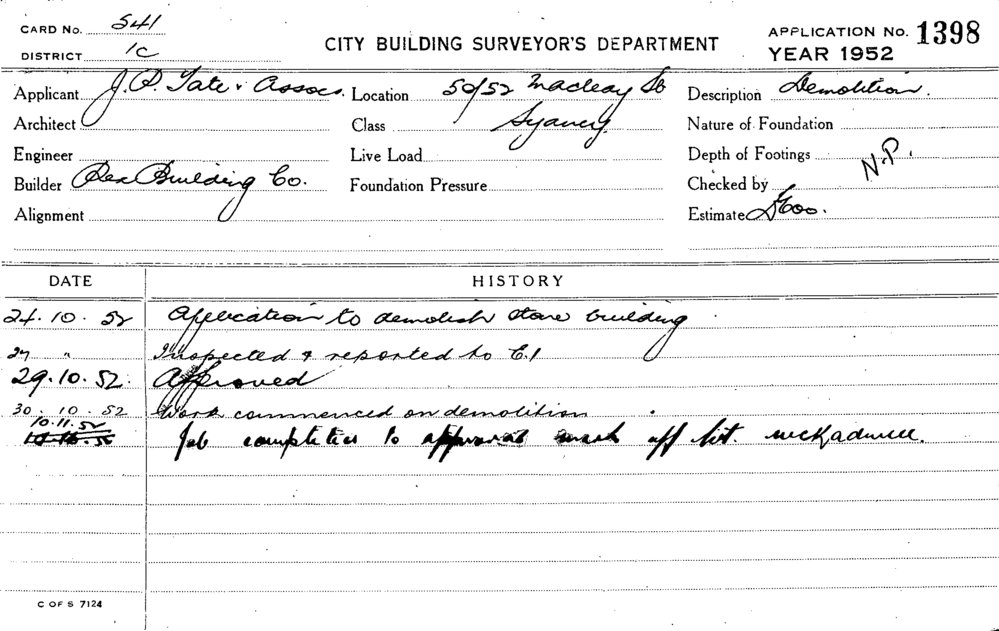 CARD No. 541
DISTRICT 1C
CITY BUILDING SURVEYOR'S DEPARTMENT
APPLICATION No. 1398
YEAR 1952
Applicant J. P. Tate & Assocs. Location 50/52 Macleay St Description Demolition.
Architect Class Sydney Nature of Foundation
Engineer Live Load Depth of Footings N.P.
Builder Rex Building Co. Foundation Pressure Checked by
Alignment Estimate
DATE HISTORY
24.10.52 Application to demolish stone building
27 " Inspected & reported to C.I
29.10.52. Approved
30.10.52 Work commenced on demolition
10.11.52 Job completed to approval mark off
C OF S 7124